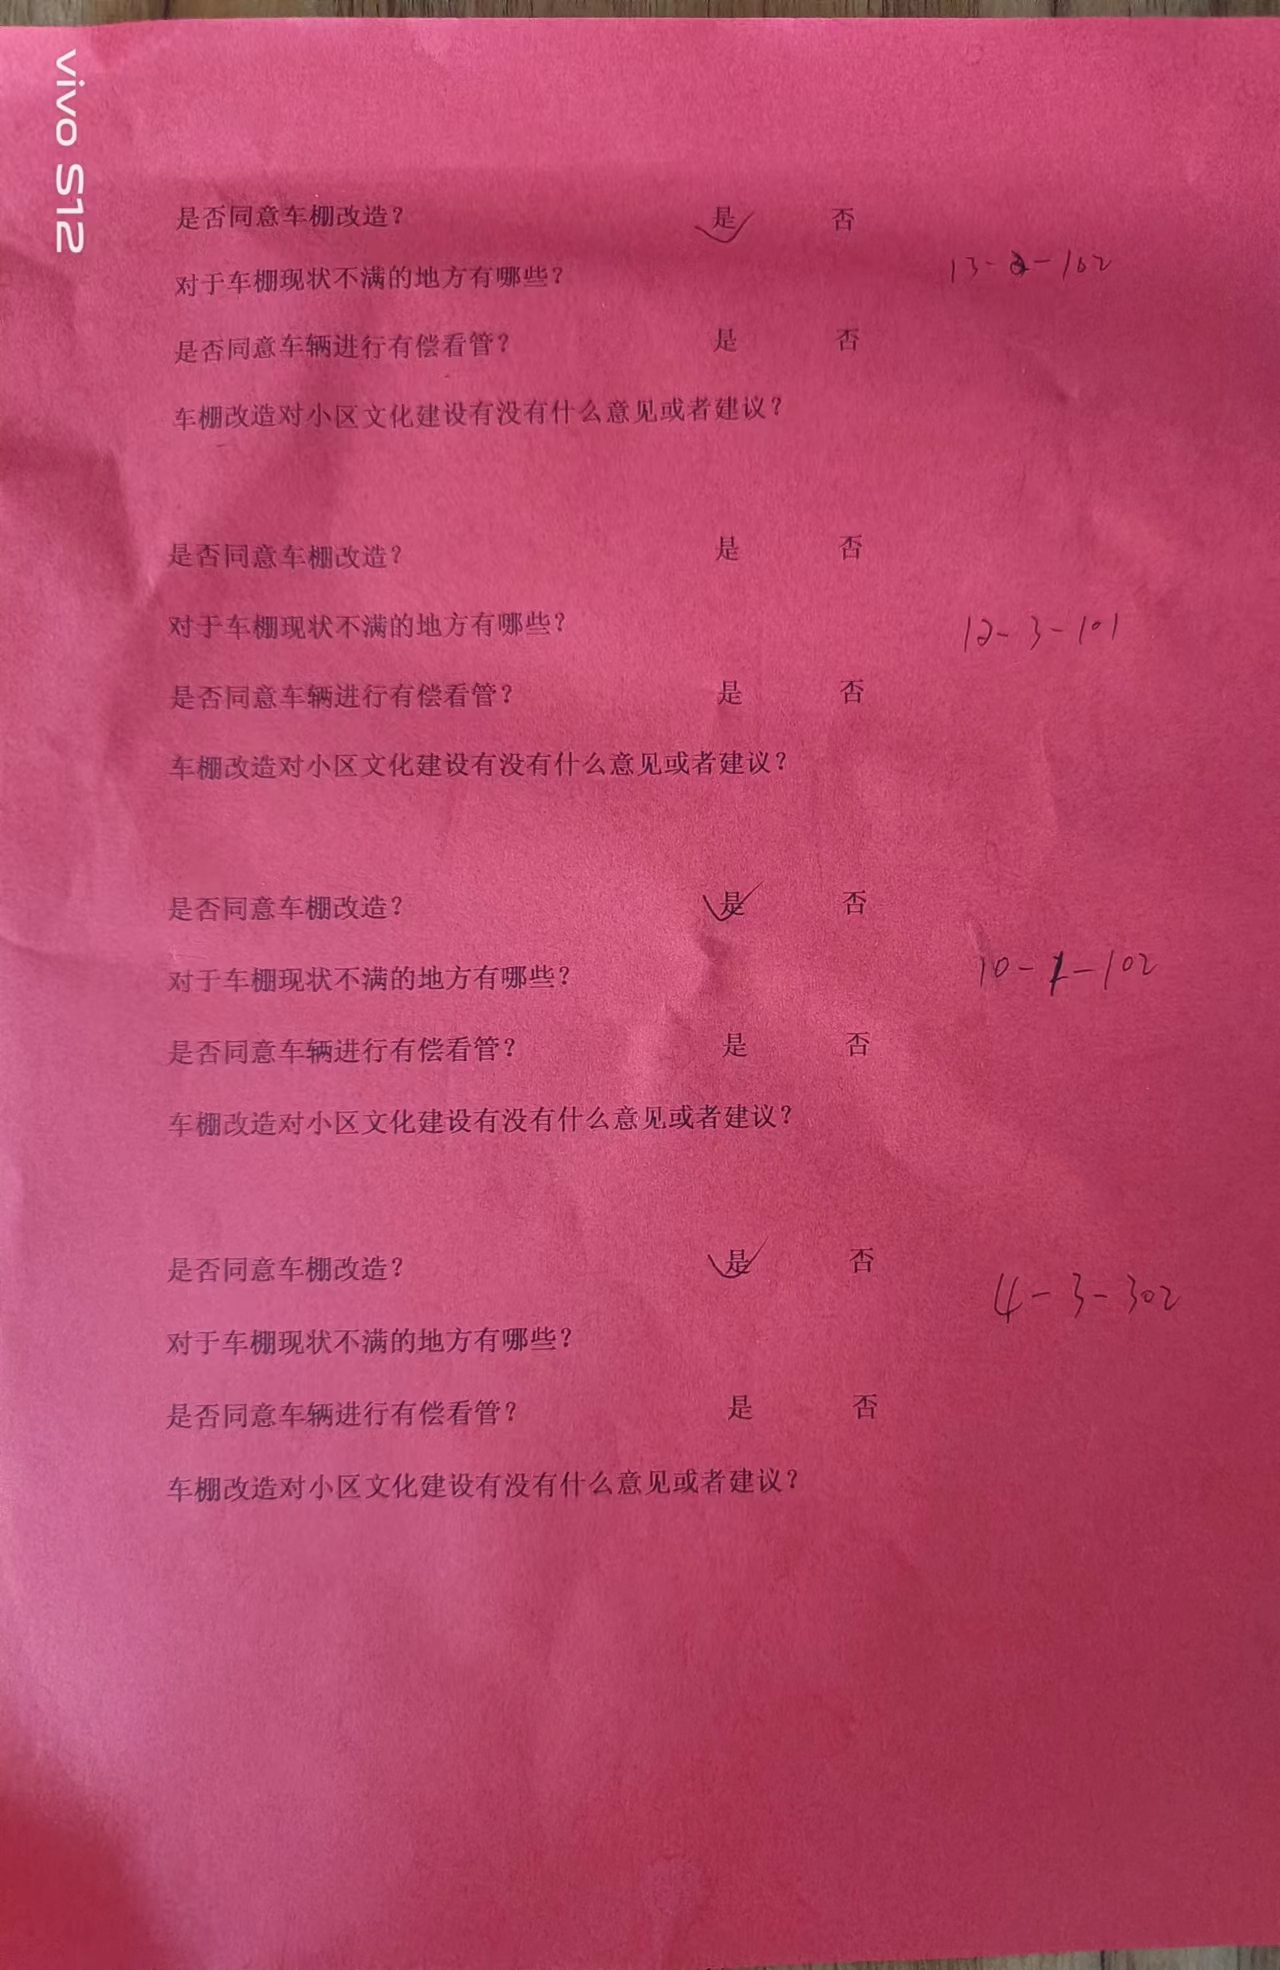 vivo S12
是否同意车棚改造？ 是 否
13-2-102
对于车棚现状不满的地方有哪些？
是否同意车辆进行有偿看管？ 是 否
车棚改造对小区文化建设有没有什么意见或者建议？
是否同意车棚改造？ 是 否
对于车棚现状不满的地方有哪些？ 12-3-101
是否同意车辆进行有偿看管？ 是 否
车棚改造对小区文化建设有没有什么意见或者建议？
是否同意车棚改造？ 是 否
对于车棚现状不满的地方有哪些？ 10-1-102
是否同意车辆进行有偿看管？ 是 否
车棚改造对小区文化建设有没有什么意见或者建议？
是否同意车棚改造？ 是 否
4-3-302
对于车棚现状不满的地方有哪些？
是否同意车辆进行有偿看管？ 是 否
车棚改造对小区文化建设有没有什么意见或者建议？